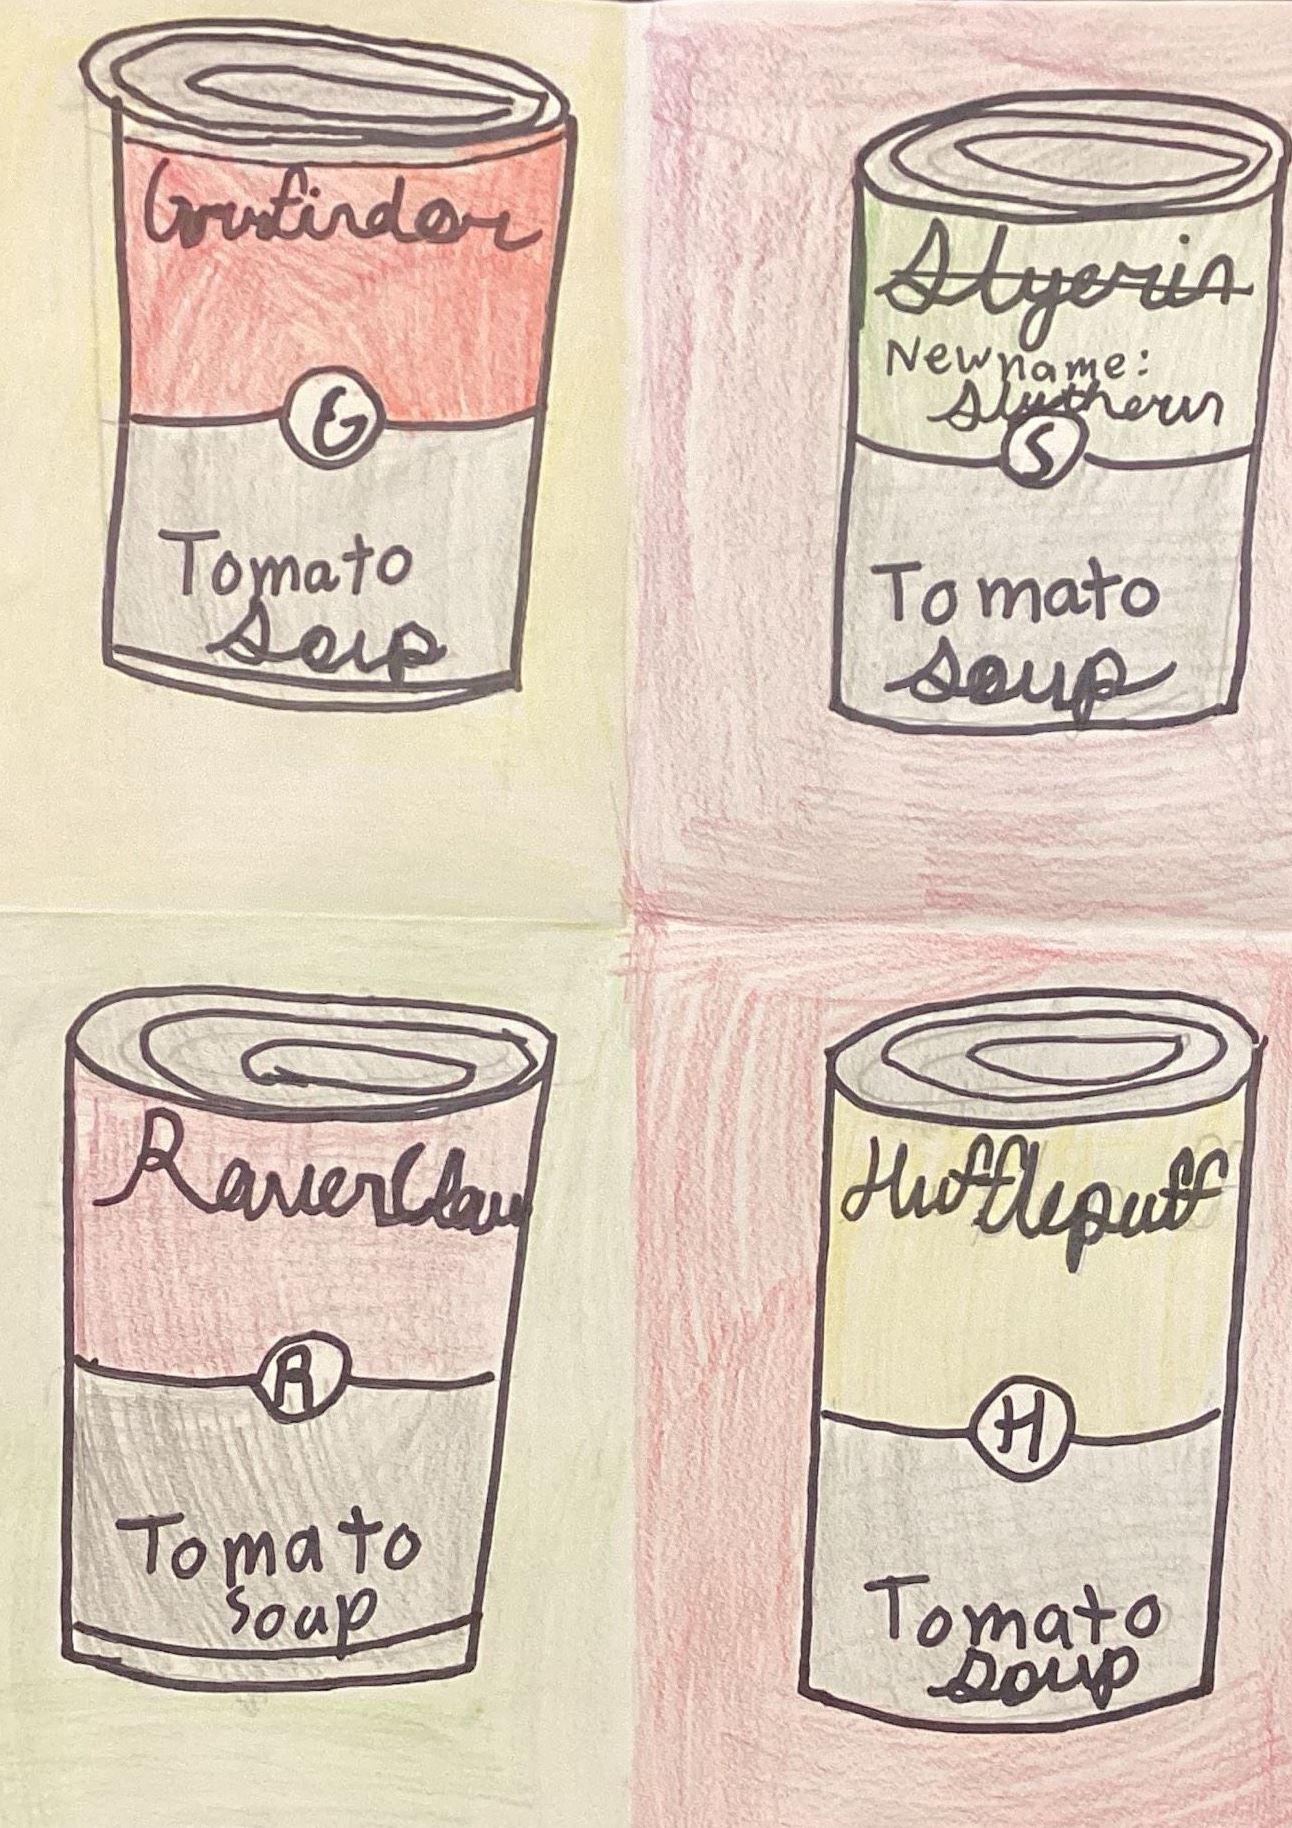 Gryfindor
G
Tomato
Soup
Slyerin
New name:
Slytherin
S
Tomato
Soup
RavenClaw
R
Tomato
soup
Hufflepuff
H
Tomato
Soup